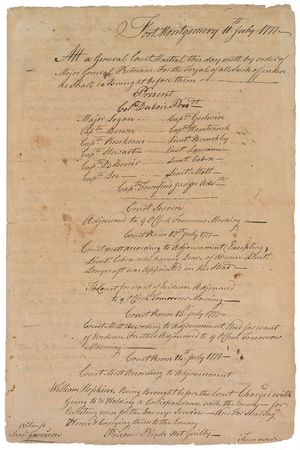 Fort Montgomery 11th July 1777
Att a General Court Martial this day mett by order of
Major General Putnam for the Tryal of all Such offenders
as Shall be Brought before them
Present
Colo Dubois Presdt
Major Logan Capt Godwin
Capt Brown Capt Hamtranck
Capt Lieut Brinckly
Capt Stewart Lieut Lawrance
Capt DeBevier Lieut Cebra
Capt Lee Lieut Mott
Capt Judge Advt
Court Sworn
Adjourned to 9 oClock Tomorrow Morning
Court Room 12th July 1777
Court mett According to Adjournment Excepting
Lieut Cebra who having Leave of Absence Lieut
was Appointed in his Stead
The Court for want of Evidence Adjourned
to 9 oClock Tomorrow Morning
Court Room 13th July 1777
Court Mett According to Adjournment And for want
of Evidence further Adjourned to 9 oClock Tomorrow
Morning
Court Room 14 July 1777
Court Mett According to Adjournment
William Hopkins Being Brought before the Court Charged with
Going to & Holding a Correspondance with the Enemy for
Enlisting men for the Enemys Service And for Stealing
Horses & Carrying them to the Enemy
Prisoner Pleads Not Guilty
Witness
Garrison
Turn over